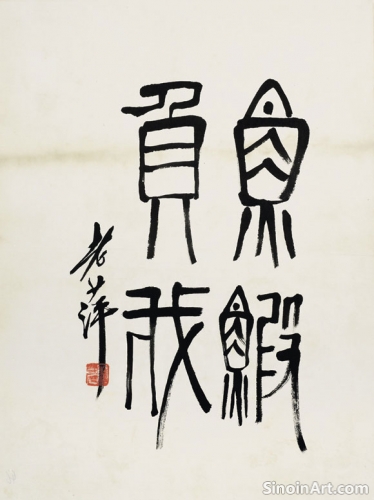 魚鰕
負我
老萍
SinoinArt.com